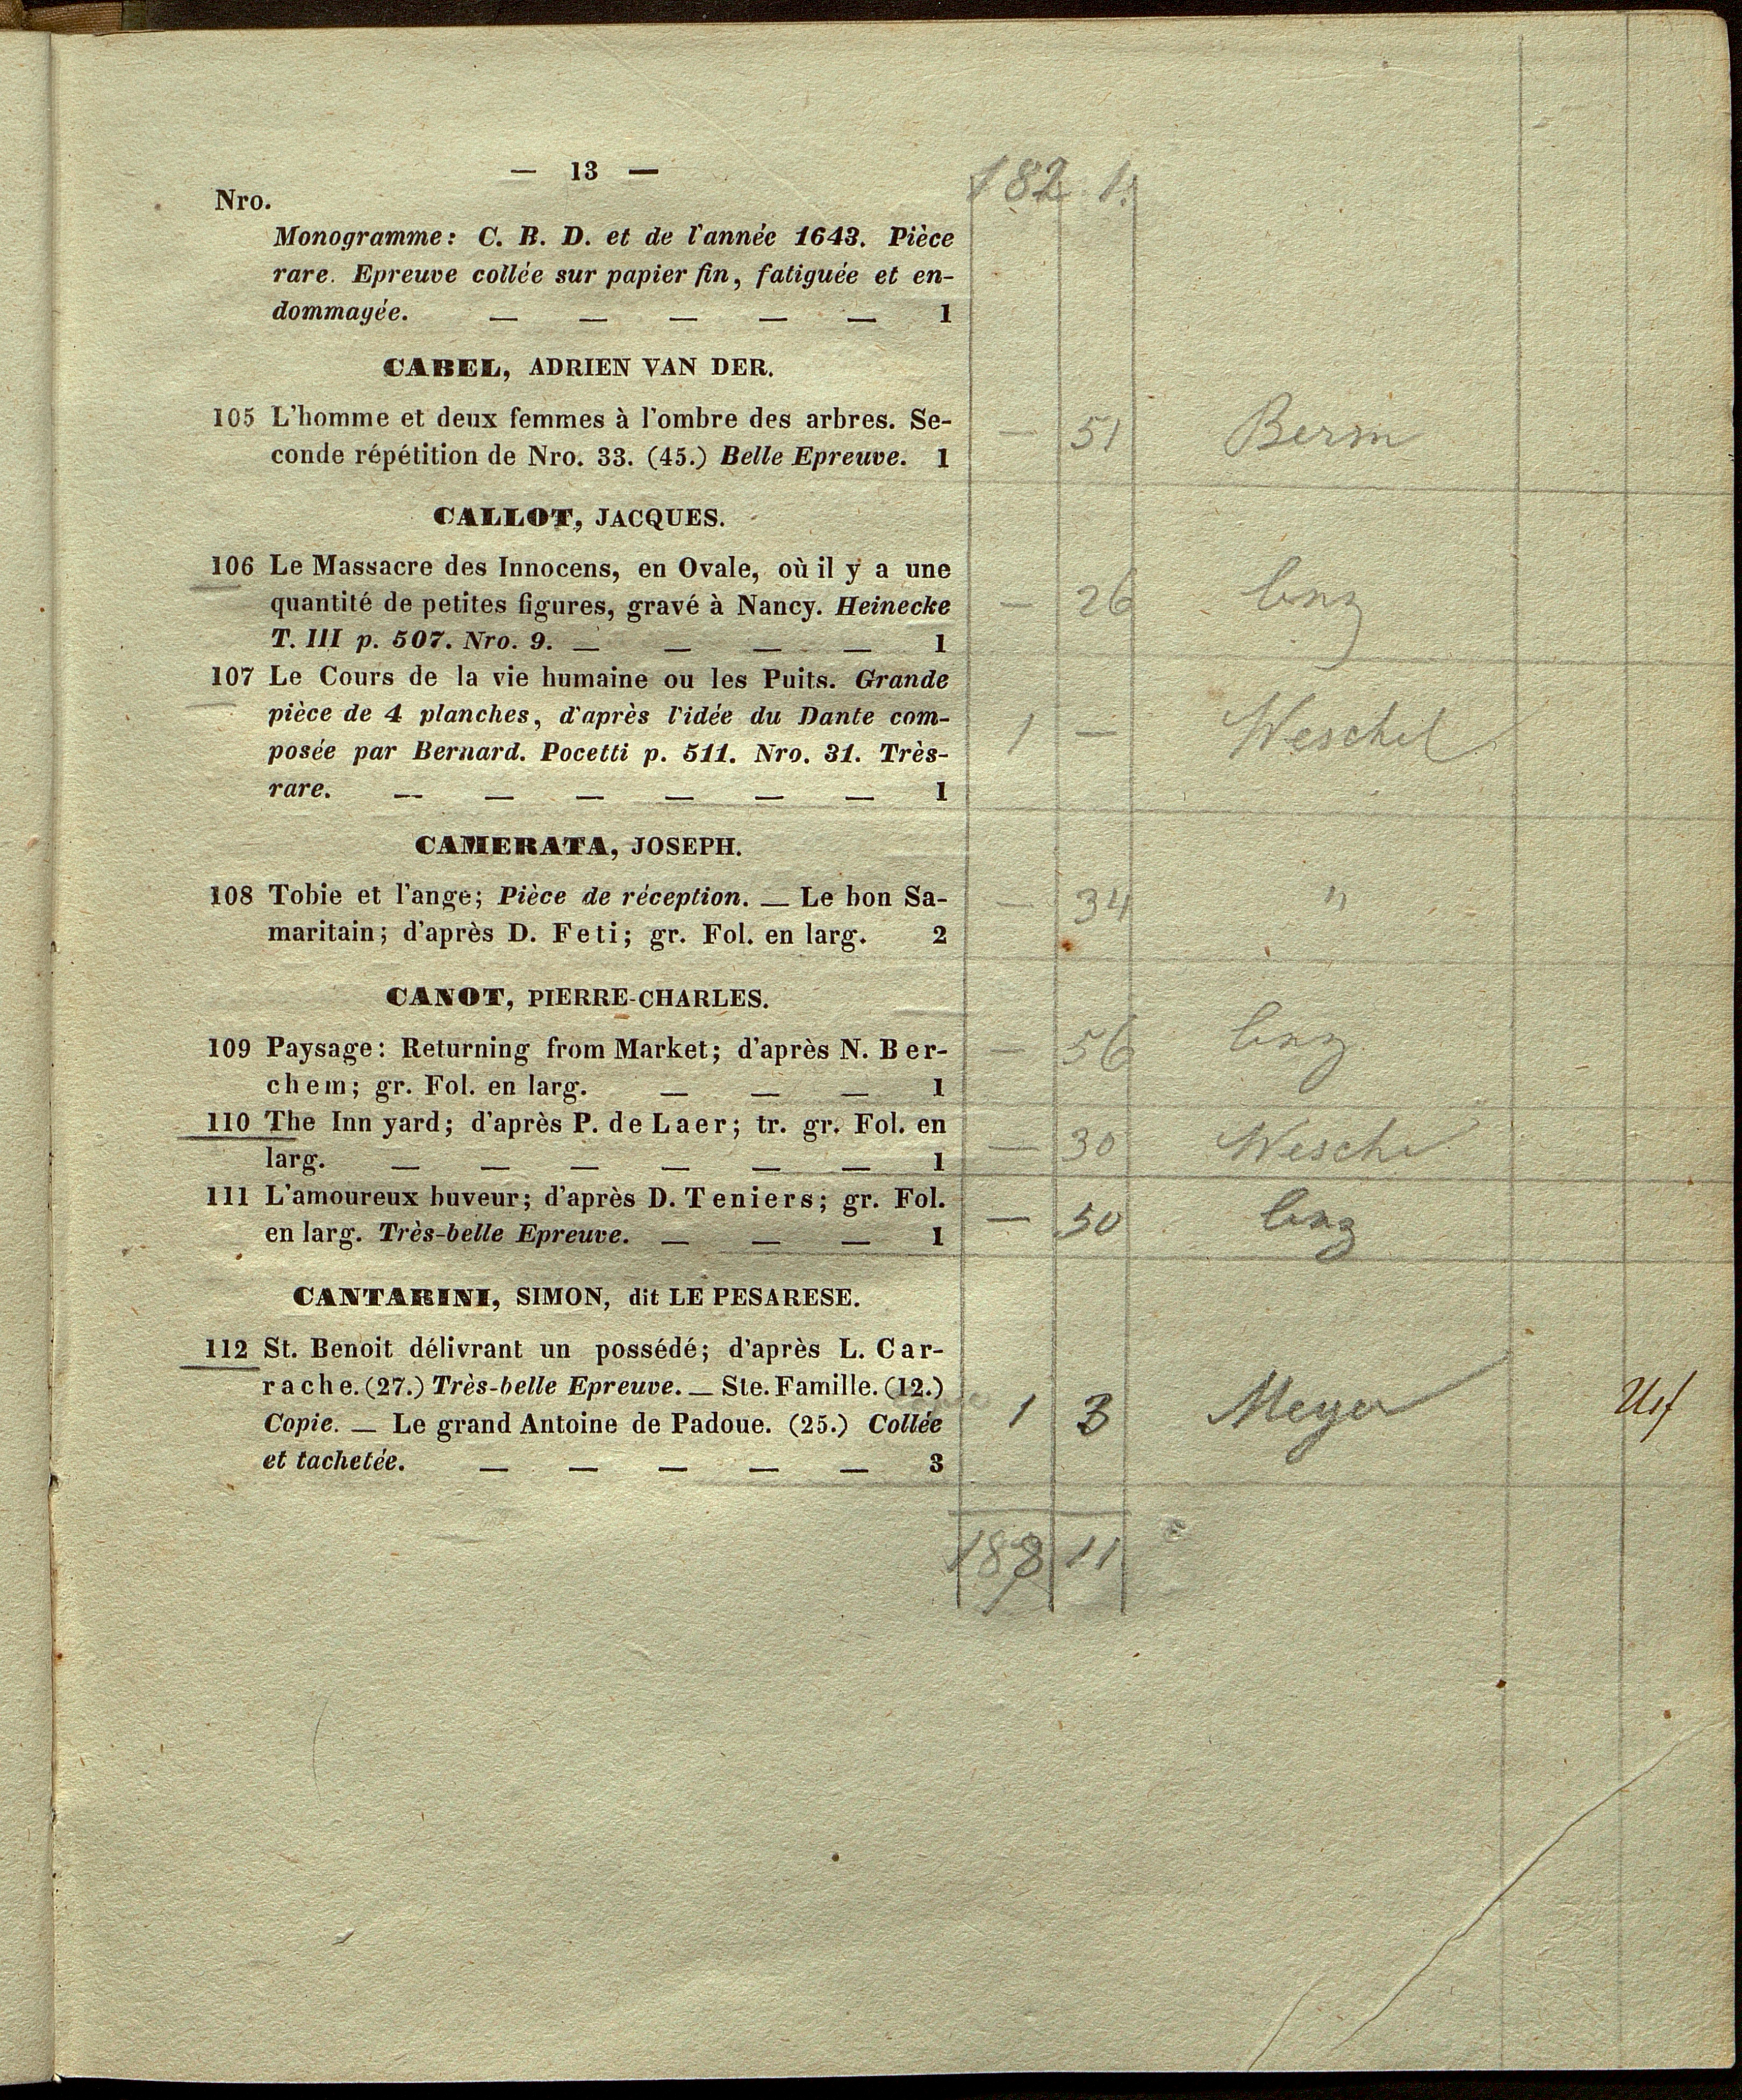 — 13 —
182 1.
Nro.
Monogramme: C. B. D. et de l'année 1643. Pièce
rare. Epreuve collée sur papier fin, fatiguée et en-
dommagée. — — — — — 1
CABEL, ADRIEN VAN DER.
105 L'homme et deux femmes à l'ombre des arbres. Se-
conde répétition de Nro. 33. (45.) Belle Epreuve. 1
— 51 Berm
CALLOT, JACQUES.
106 Le Massacre des Innocens, en Ovale, où il y a une
quantité de petites figures, gravé à Nancy. Heinecke
T. III p. 507. Nro. 9. — — — — 1
— 26
107 Le Cours de la vie humaine ou les Puits. Grande
pièce de 4 planches, d'après l'idée du Dante com-
posée par Bernard. Pocetti p. 511. Nro. 31. Très-
rare. — — — — — — 1
1 — Weschel
CAMERATA, JOSEPH.
108 Tobie et l'ange; Pièce de réception. — Le bon Sa-
maritain; d'après D. Feti; gr. Fol. en larg. 2
— 34 "
CANOT, PIERRE-CHARLES.
109 Paysage: Returning from Market; d'après N. Ber-
chem; gr. Fol. en larg. — — — 1
— 56
110 The Inn yard; d'après P. de Laer; tr. gr. Fol. en
larg. — — — — — — 1
— 30 Wesche
111 L'amoureux buveur; d'après D. Teniers; gr. Fol.
en larg. Très-belle Epreuve. — — — 1
— 50
CANTARINI, SIMON, dit LE PESARESE.
112 St. Benoit délivrant un possédé; d'après L. Car-
rache. (27.) Très-belle Epreuve. — Ste. Famille. (12.)
Copie. — Le grand Antoine de Padoue. (25.) Collée
et tachetée. — — — — — 3
1 3 Meyer
188 11